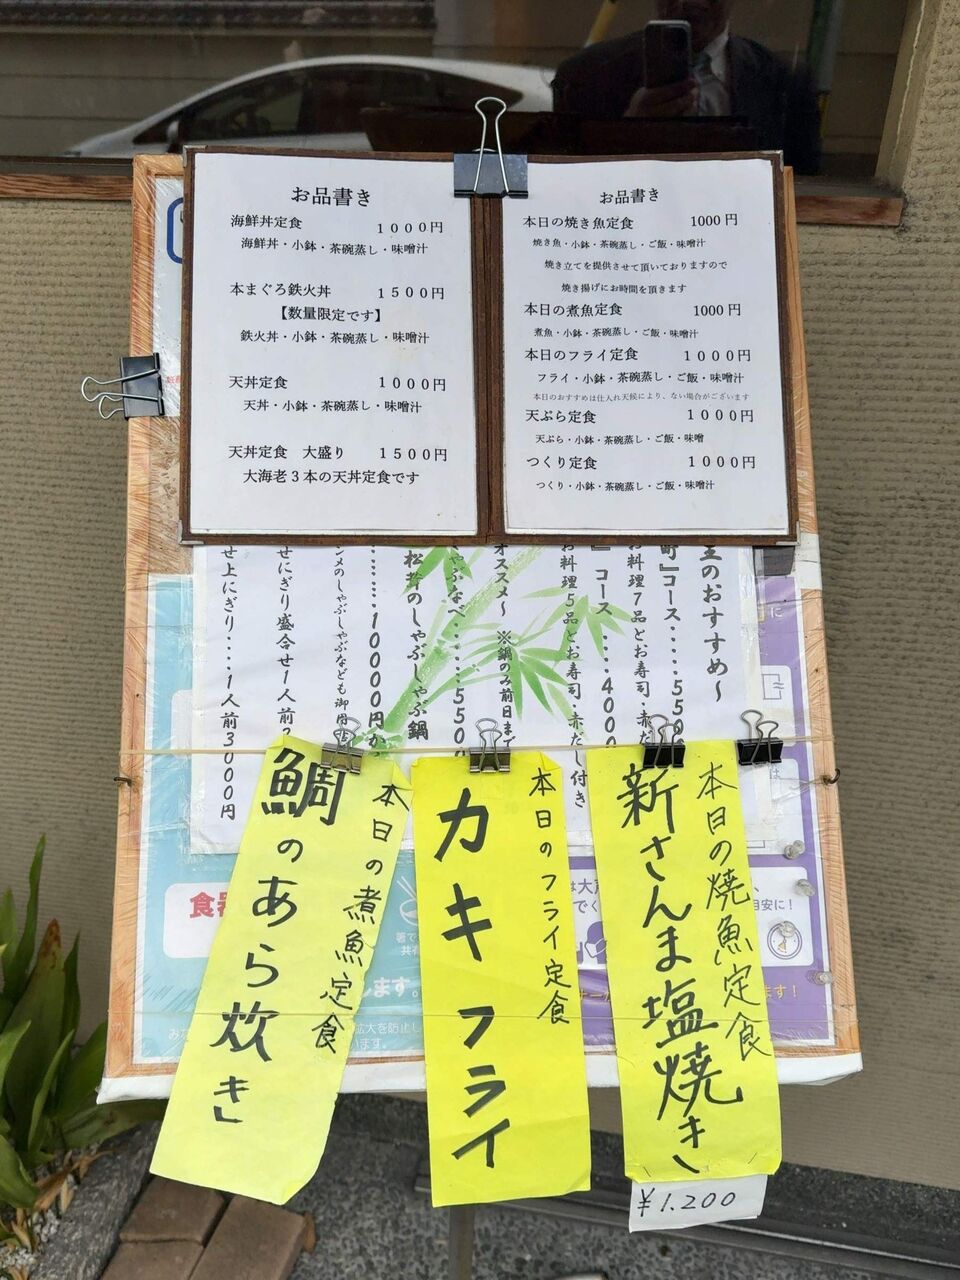 お品書き
海鮮丼定食 1000円
海鮮丼・小鉢・茶碗蒸し・味噌汁
本まぐろ鉄火丼 1500円
【数量限定です】
鉄火丼・小鉢・茶碗蒸し・味噌汁
天丼定食 1000円
天丼・小鉢・茶碗蒸し・味噌汁
天丼定食 大盛り 1500円
大海老3本の天丼定食です
お品書き
本日の焼き魚定食 1000円
焼き魚・小鉢・茶碗蒸し・ご飯・味噌汁
焼き立てを提供させて頂いておりますので
焼き揚げにお時間を頂きます
本日の煮魚定食 1000円
煮魚・小鉢・茶碗蒸し・ご飯・味噌汁
本日のフライ定食 1000円
フライ・小鉢・茶碗蒸し・ご飯・味噌汁
本日のおすすめは仕入れ天候により、ない場合がございます
天ぷら定食 1000円
天ぷら・小鉢・茶碗蒸し・ご飯・味噌
つくり定食 1000円
つくり・小鉢・茶碗蒸し・ご飯・味噌汁
のおすすめ～
町』コース‥‥550
お料理7品とお寿司・赤だ
』コース‥‥4000
お料理5品とお寿司・赤だし付き
オススメ～ ※鍋のみ前日まで
ゃぶなべ‥‥‥550
松茸のしゃぶしゃぶ鍋
‥‥‥10000円か
ンメのしゃぶしゃぶなども御用
せにぎり盛合せ1人前
せ上にぎり‥‥1人前3000円
本日の焼魚定食
新さんま塩焼き
¥1.200
本日のフライ定食
カキフライ
本日の煮魚定食
鯛のあら炊き
食器
箸で
共有
します。
拡大を防止し
います。
は大
でく
目安に!
ます!